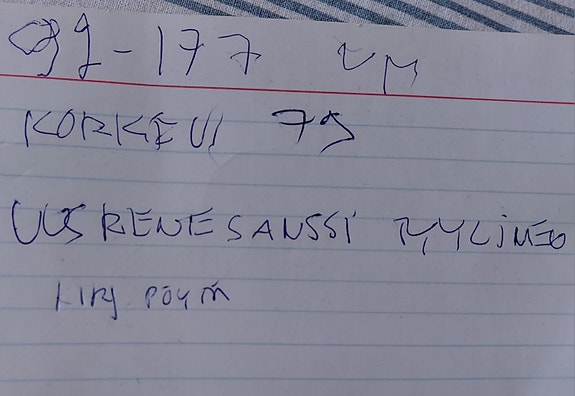 99-177
KORKEUS 75
UUSRENESANSSI TYYLINEN
KIRJ. PÖYTÄ